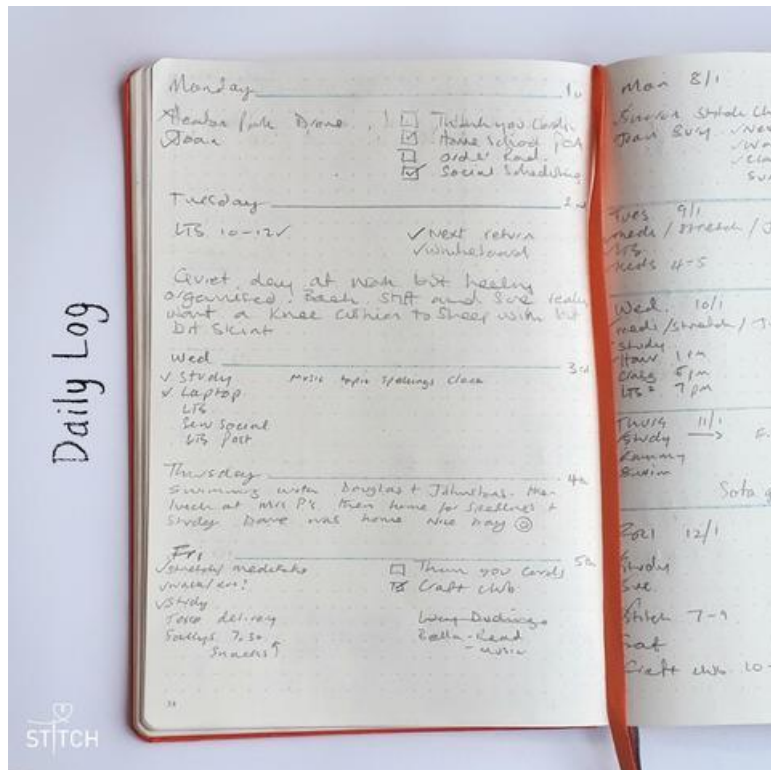 Daily Log
Monday 1st
Heaton Park Drone
Joan
Thank you Cards
Home School
order
Social Scheduling
Tuesday 2nd
LTB 10-12 ✓
✓ Next return
✓
Quiet day at work but feeling
organised. Back stiff and sore really
want a Knee cushion to sleep with but
bit Skint
Wed 3rd
✓ Study
Music topic spellings Clock
✓ Laptop
LTB
Sew Social
LTB Post
Thursday 4th
Swimming with Douglas + Johnstons. then
lunch at Mrs P's then home for Spellings +
Study Dave was home Nice Day
Fri 5th
✓ stretch/meditate
✓
✓ Study
Tesco delivery
7.30
Snacks ↑
Thank you Cards
Craft club
Bella-Read
- Music
Mon 8/1
Tues 9/1
meds / Stretch /
LTB
Meds 4-5
Wed. 10/1
medi/stretch /
Study
1 pm
Craig 5 pm
LTB 7 pm
Thurs 11/1
Study →
Swim
Fri 12/1
Study
Sue
Stitch 7-9
Sat
Craft club 10-
STITCH